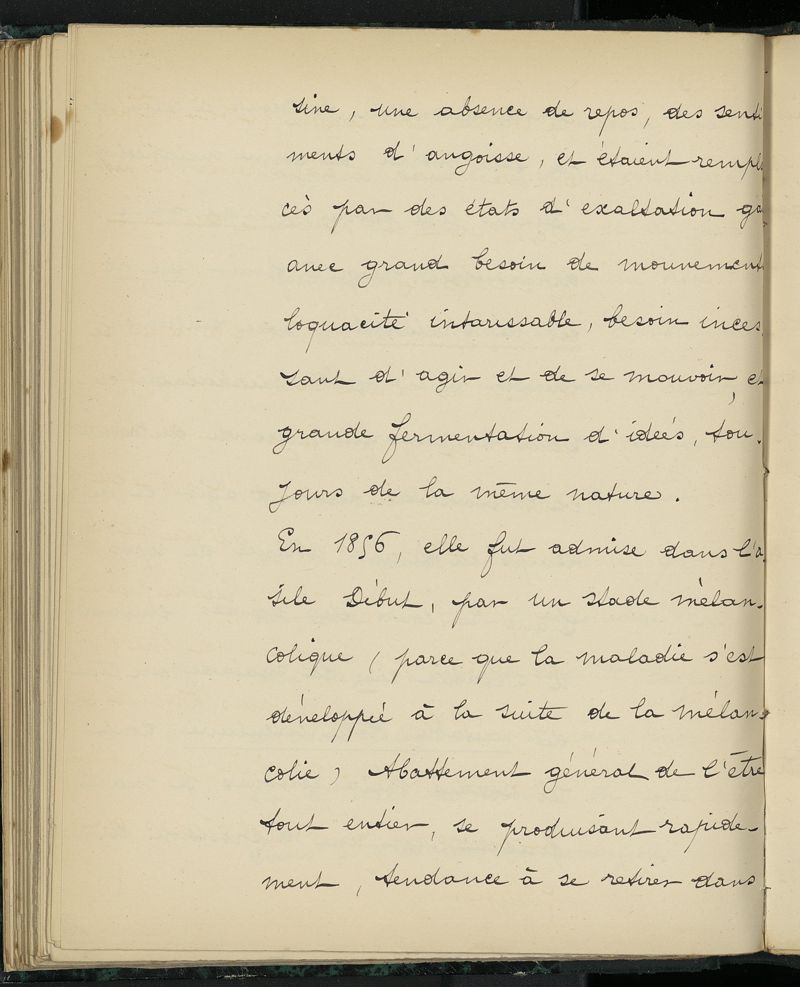 sine, une absence de repos, des senti
ments d'angoisse, et étaient rempla
cés par des états d'exaltation ga
avec grand besoin de mouvement
loquacité intarissable, besoin inces
sant d'agir et de se mouvoir, et
grande fermentation d'ideés, tou-
jours de la même nature.
En 1856, elle fut admise dans l'a
sile Début, par un stade mélan-
colique (parce que la maladie s'est
développié à la suite de la mélan-
colie) Abattement général de l'être
tout entier, se produisant rapide-
ment, tendance à se retirer dans